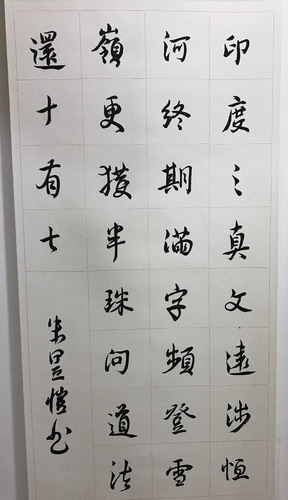 印度之真文遠涉恒
河終期滿字頻登雪
嶺更獲半珠問道法
還十有七
朱昱愷书